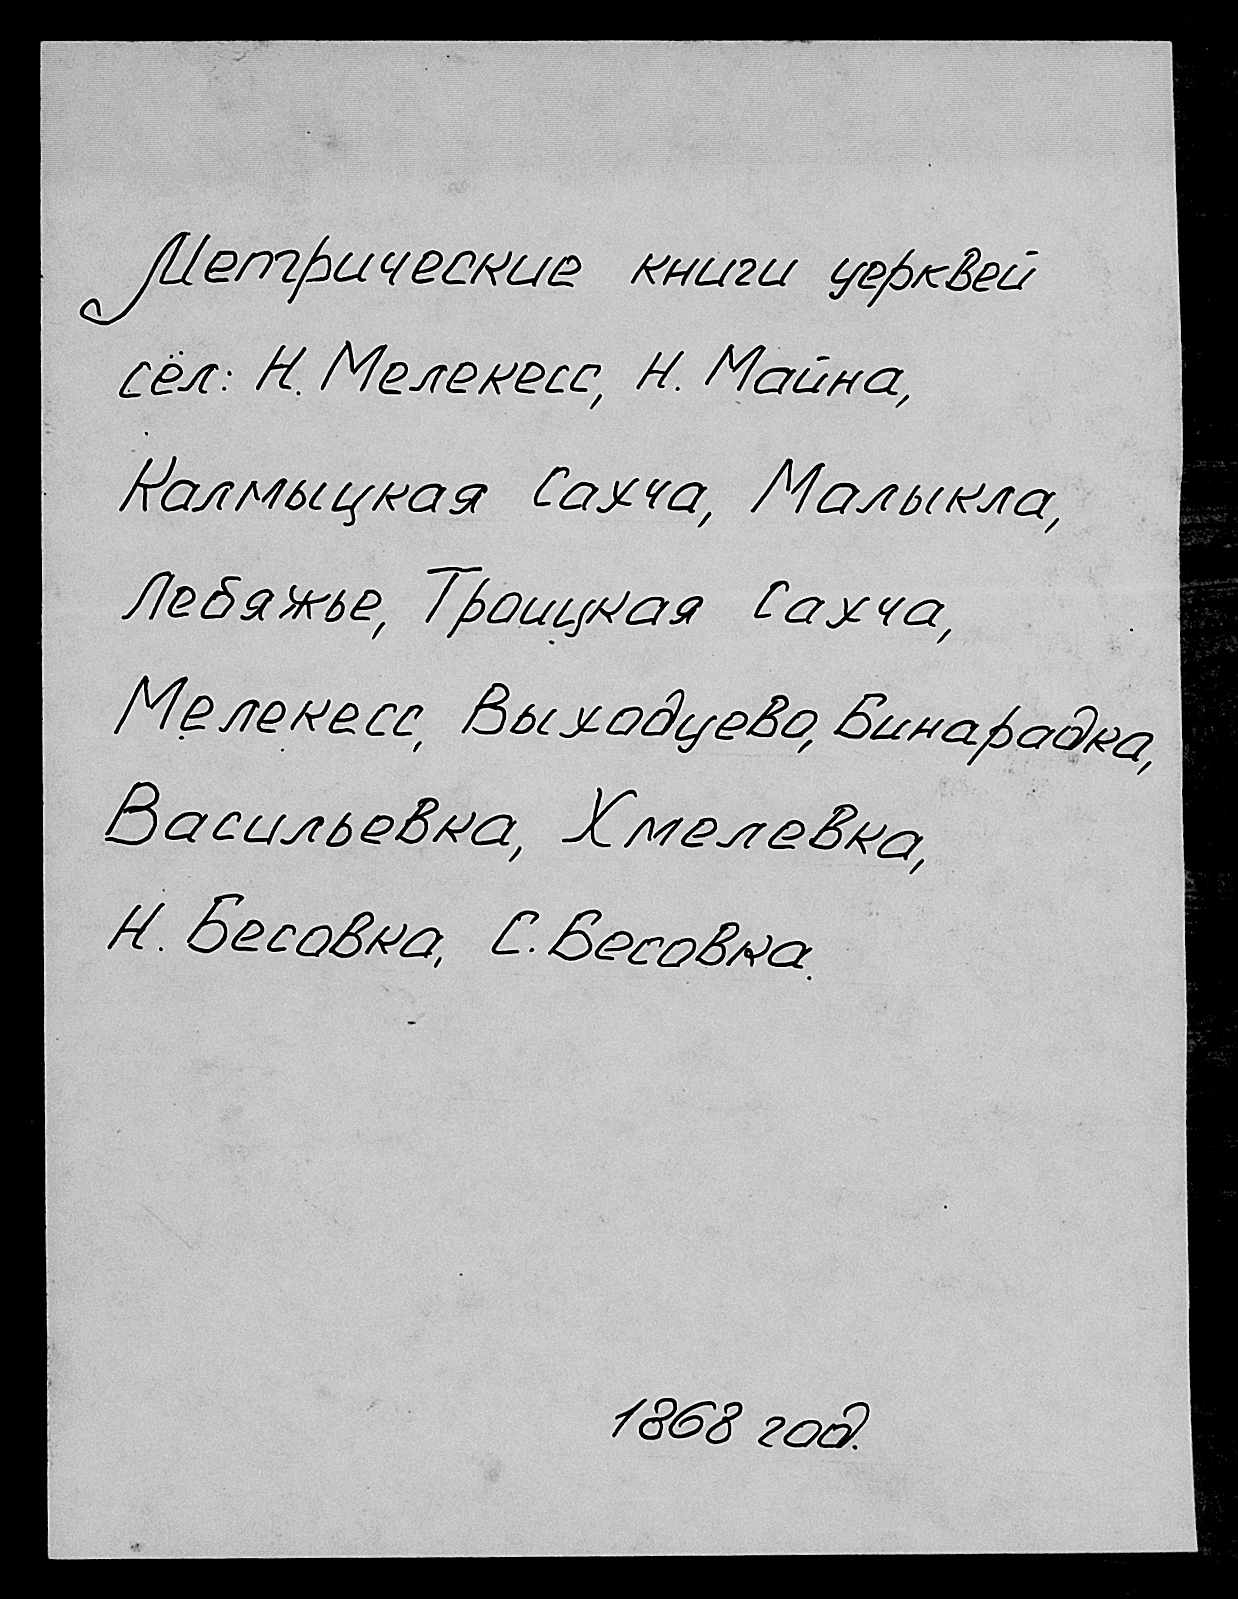 Метрические книги церквей
сёл: Н. Мелекесс, Н. Майна,
Калмыцкая Сахча, Малыкла,
Лебяжье, Троицкая Сахча,
Мелекесс, Выходцево, Бинарадка,
Васильевка, Хмелевка,
Н. Бесовка, С. Бесовка.
1868 год.